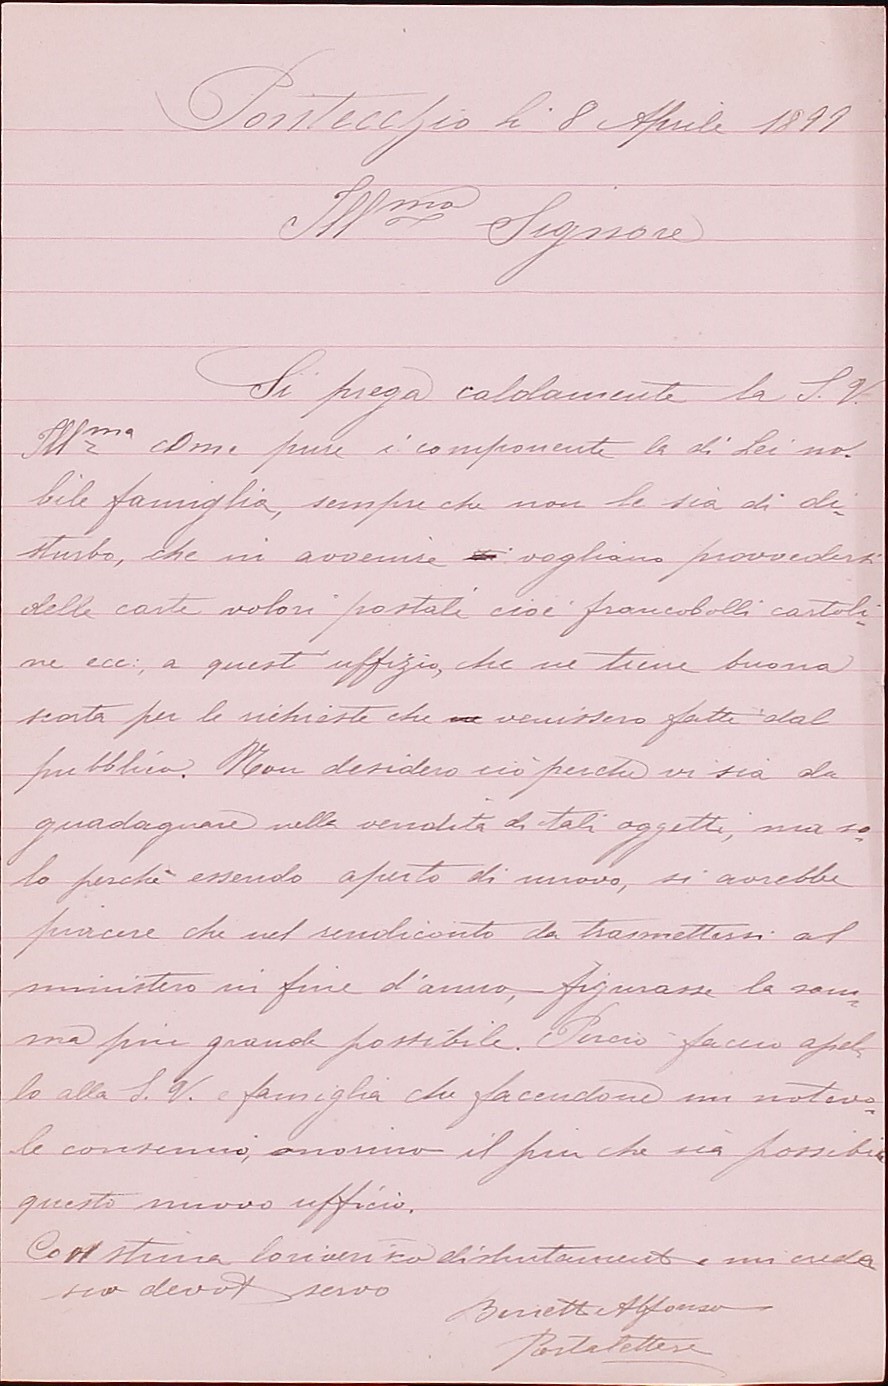 Pontecchio li 8 Aprile 1899
Ill.mo Signore
Si prega caldamente la S. V.
Ill.ma come pure i componente la di Lei no-
bile famiglia, sempre che non le sia di di-
sturbo, che in avvenire vogliano provvedersi
delle carte valori postali cioè francobolli cartoli-
ne ecc:, a quest'uffizio, che ne tiene buona
scorta per le richieste che venissero fatte dal
pubblico. Non desidero ciò perchè vi sia da
guadagnare nella vendita di tali oggetti, ma so-
lo perchè essendo aperto di nuovo, si avrebbe
piacere che nel rendiconto da trasmettersi al
ministero in fine d'anno, figurasse la som-
ma più grande possibile. Perciò faccio apel-
lo alla S. V. e famiglia che facendone un notevo-
le consumo, onorino il più che sia possibile
questo nuovo ufficio.
Con stima lo riverisco distintamente e mi creda
suo devot servo
Alfonso
Portalettere